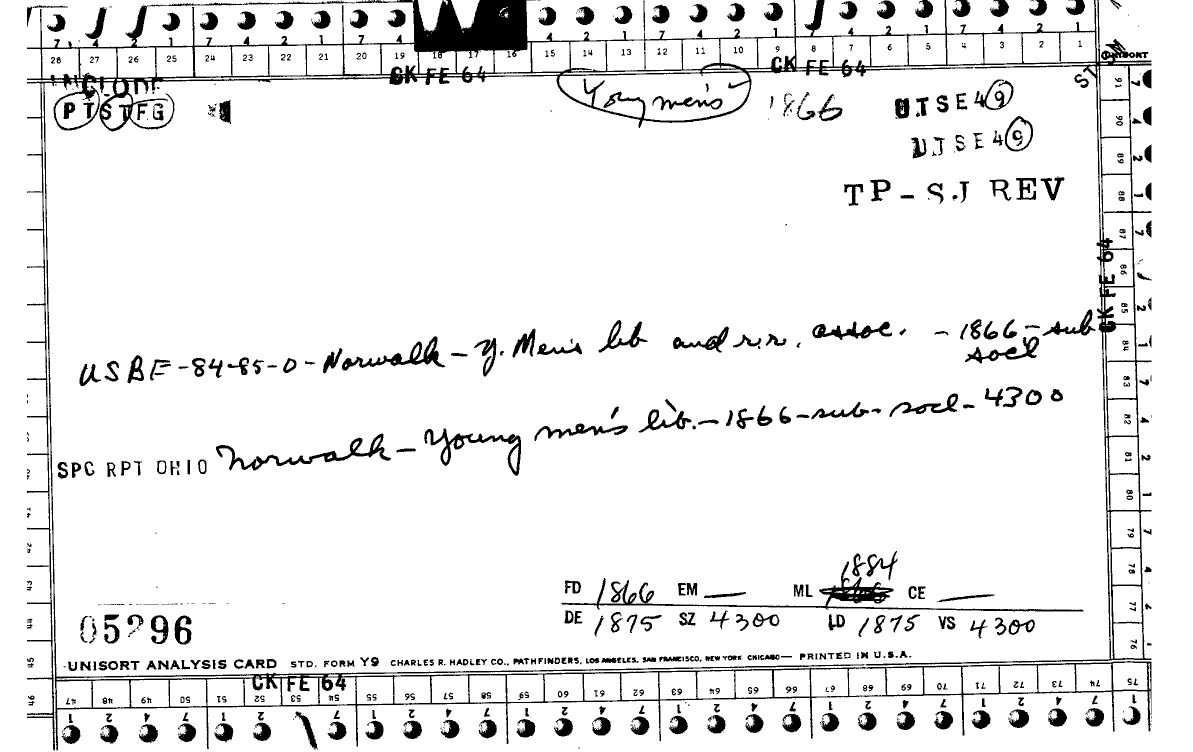 7 4 2 1 7 4 2 1 7 4 4 2 1 7 4 2 1 7 4 2 1 7 4 2 1
28 27 26 25 24 23 22 21 20 19 18 17 16 15 14 13 12 11 10 9 8 7 6 5 4 3 2 1 UNISORT
CK FE 64 CK FE 64
PTSTFG Young men's 1866 UTSE49
UTSE49
TP-SJ REV
CK FE 64
USBE-84-85-O-Norwalk-Y. Men's lib and r.r. assoc. - 1866-sub
socl
SPC RPT OHIO Norwalk-Young men's lib.-1866-sub-socl-4300
1884
FD 1866 EM — ML 1866 CE —
DE 1875 SZ 4300 LD 1875 VS 4300
05296
UNISORT ANALYSIS CARD STD. FORM Y9 CHARLES R. HADLEY CO., PATHFINDERS, LOS ANGELES, SAN FRANCISCO, NEW YORK CHICAGO— PRINTED IN U.S.A.
CK FE 64
47 48 49 50 51 52 53 54 55 56 57 58 59 60 61 62 63 64 65 66 67 68 69 70 71 72 73 74 75
91 90 89 88 87 86 85 84 83 82 81 80 79 78 77 76